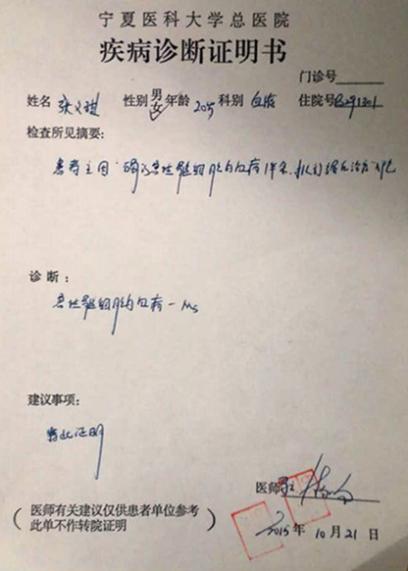 宁夏医科大学总医院
疾病诊断证明书
门诊号
姓名 性别 男 女 年龄 20岁 科别 血液 住院号
检查所见摘要：
患者主因"确诊急性髓细胞白血病1年余
诊断：
急性髓细胞白血病－M5
建议事项：
特此证明
医师
（医师有关建议仅供患者单位参考
此单不作转院证明）
2015年10月21日